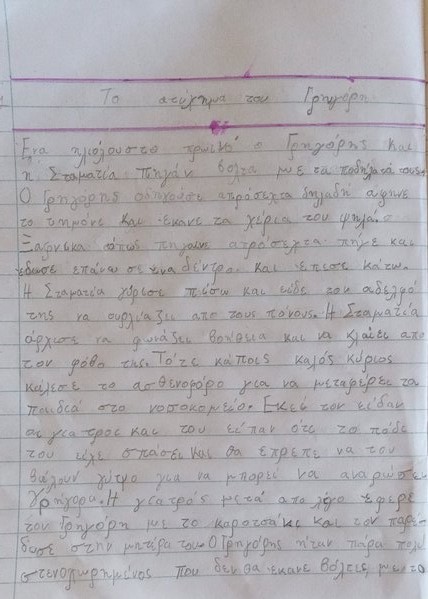 Το ατύχημα του Γρηγόρη
Ενα ηλιόλουστο πρωινό ο Γρηγόρης και
η Σταματία πήγαν βόλτα με τα ποδήλατά τους.
Ο Γρηγόρης οδηγούσε απρόσεχτα δηλαδή αφηνε
το τημόνι και έκανε τα χέρια του ψηλά.
Ξαφνικα όπως πηγαινε απρόσεχτα πηγε και
έδωσε επάνω σε ενα δέντρο. Και επεσε κάτω.
Η Σταματία γύρισε πίσω και είδε τον αδελφό
της να ουρλιάζει απο τους πόνους. Η Σταματία
άρχισε να φωνάζει βοήθεια και να κλαίει απο
τον φόβο της. Τότε κάποις καλός κύριος
κάλεσε το ασθενοφόρο για να μεταφέρει τα
παιδιά στο νοσοκομείο. Εκεί τον είδαν
οι γιατροι και του είπαν οτι το πόδι
του είχε σπάσει και θα έπρεπε να του
βάλουν γύψο για να μπορεί να αναρώσει
γρήγορα. Η γιατρός μετά απο λίγο έφερε
τον Γρηγόρη με το καροτσάκι και τον παρέ-
δωσε στην μητέρα του. Ο Γρηγόρης ήταν πάρα πολύ
στενοχωρημένος που δεν θα εκανε βόλτες με το